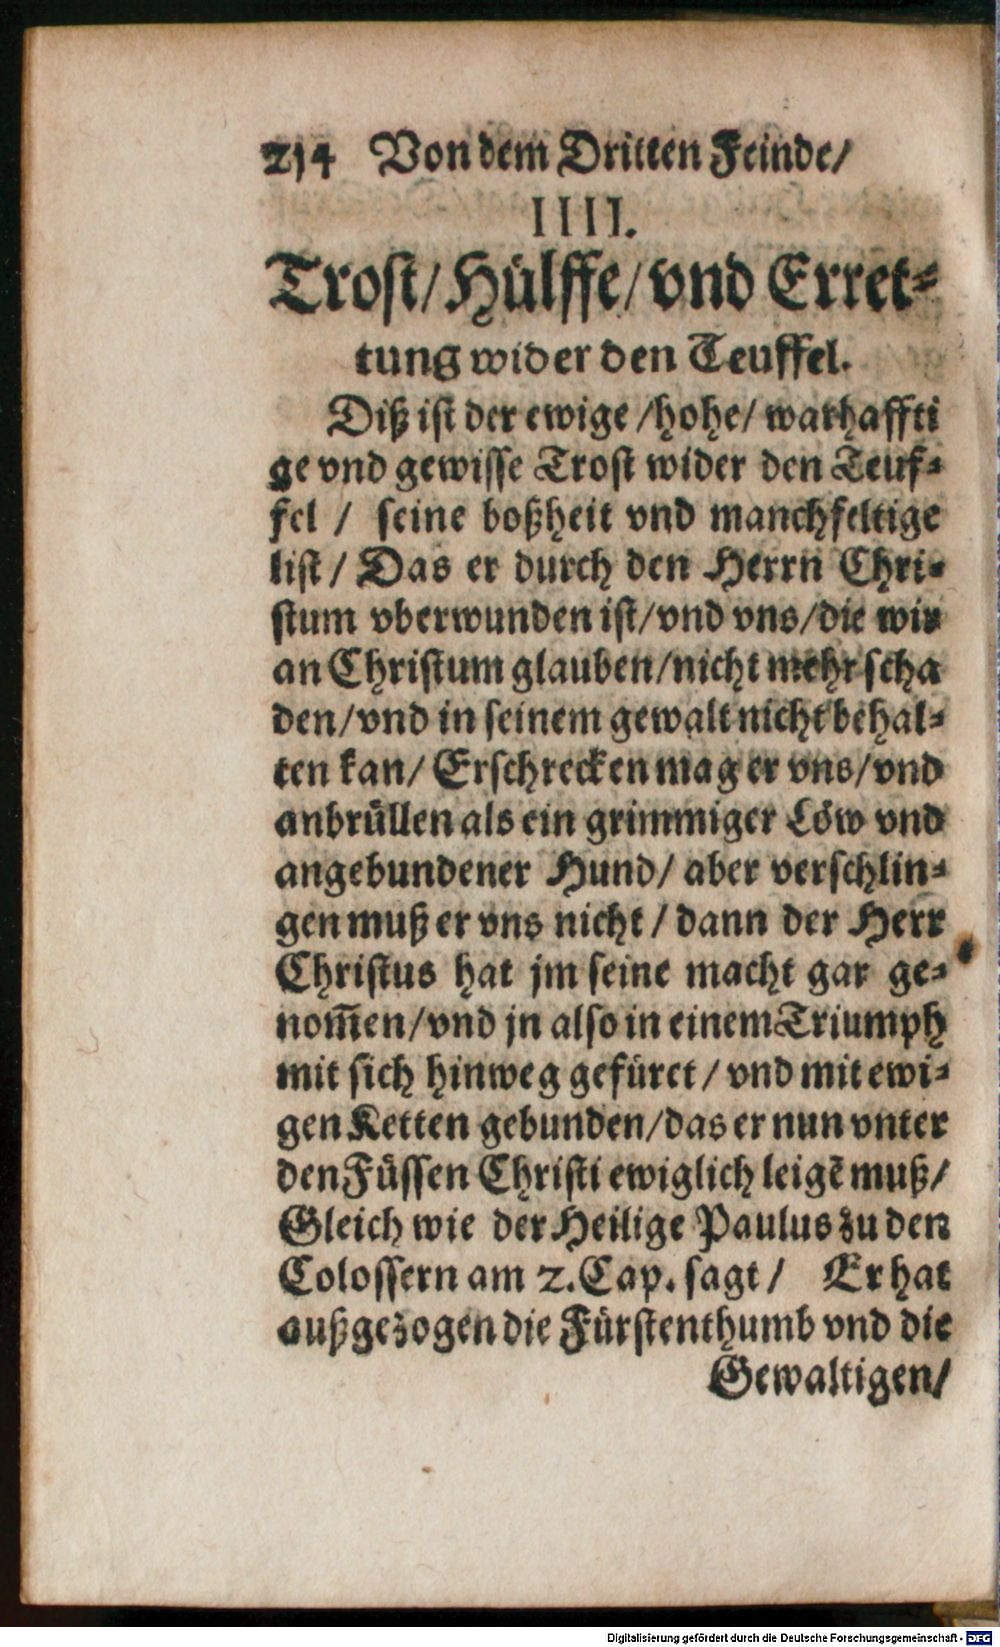 214 Von dem Dritten Feinde/
IIII.
Trost/Hülffe/vnd Erret⸗
tung wider den Teuffel.
Diß ist der ewige/hohe/warhaffti
ge vnd gewisse Trost wider den Teuf⸗
fel / seine boßheit vnd manchfeltige
list/ Das er durch den Herrn Chri⸗
stum vberwunden ist/vnd vns/die wir
an Christum glauben/nicht mehr scha
den/vnd in seinem gewalt nicht behal⸗
ten kan/ Erschrecken mag er vns/vnd
anbrüllen als ein grimmiger Löw vnd
angebundener Hund/ aber verschlin⸗
gen muß er vns nicht / dann der Herr
Christus hat jm seine macht gar ge⸗
nom̃en/vnd jn also in einem Triumph
mit sich hinweg gefüret / vnd mit ewi⸗
gen Ketten gebunden/das er nun vnter
den Füssen Christi ewiglich leigẽ muß/
Gleich wie der Heilige Paulus zu den
Colossern am 2. Cap. sagt / Er hat
außgezogen die Fürstenthumb vnd die
Gewaltigen/
Digitalisierung gefördert durch die Deutsche Forschungsgemeinschaft - DFG